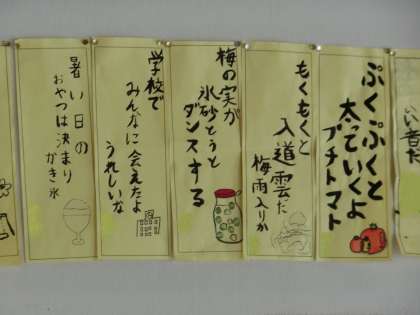 ぷくぷくと
太っていくよ
プチトマト
もくもくと
入道雲だ
梅雨入りか
梅の実が
氷砂とうと
ダンスする
学校で
みんなに会えたよ
うれしいな
暑い日の
おやつは決まり
かき氷